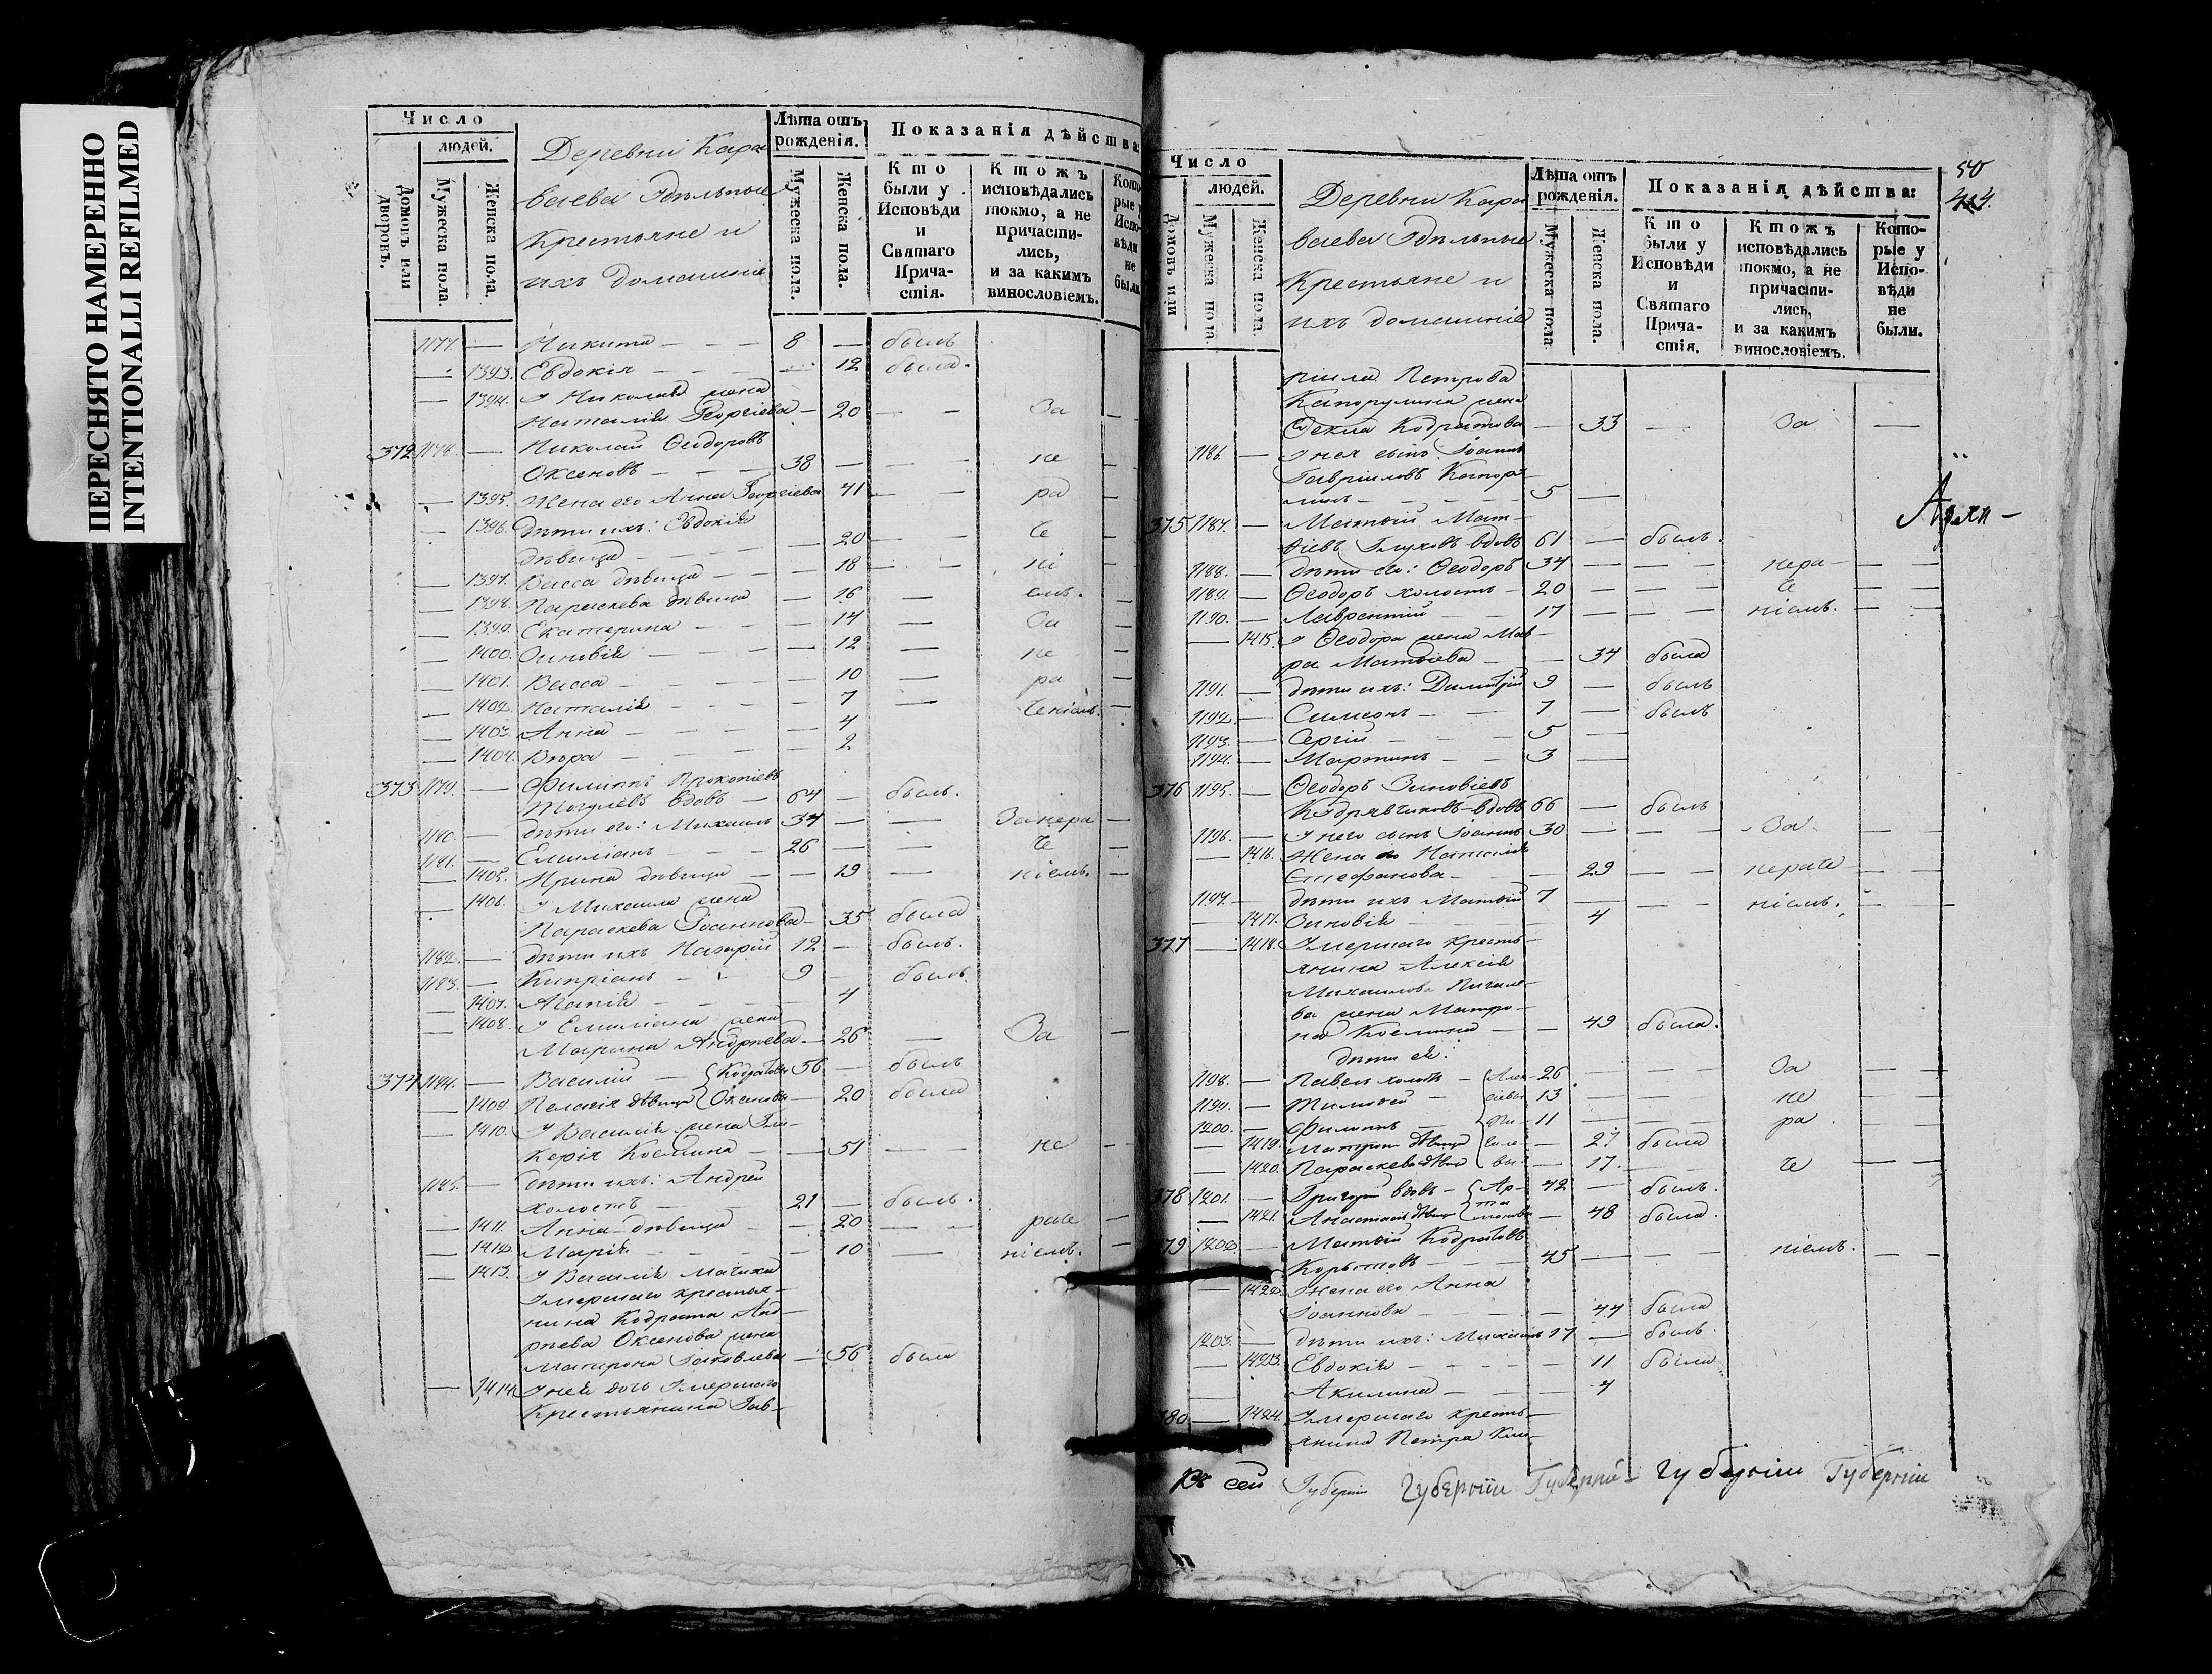 ПЕРЕСНЯТО НАМЕРЕННО
INTENTIONALLI REFILMED
Число
людей.
Домовъ или дворовъ.
Мужеска пола.
Женска пола.
Деревни Кара
ваева Удѣльные
Крестьяне и
ихъ домашніе
Лѣта отъ рожденія.
Мужеска пола.
Женска пола.
Показанія дѣйства:
Кто были у Исповѣди и Святаго Причастія.
Ктожъ исповѣдались токмо, а не причастились, и за какимъ винословіемъ.
Кото-
рые у
Испо-
вѣди
не
были.
1177. — Никита — — — 8 — былъ
— 1393. Евдокія — — — 12 была.
— 1394. У Николая жена
Наталія Георгіева — 20 — — За —
372 1178. — Николай Ѳеодоровъ
Оксеновъ — — — 38 — — не
— 1395. Жена его Анна Георгіева 41 — — ра —
— 1396. дѣти ихъ: Евдокія
дѣвица — — — 20 — — че —
— 1397. Васса дѣвица — — 18 — — ні —
— 1398. Параскева дѣвица — 16 — емъ. —
— 1399. Екатерина — — — 14 — За —
— 1400. Зиновія — — — 12 — не —
— 1401. Васса — — — 10 — ра —
— 1402. Наталія — — — 7 — ченіемъ. —
— 1403. Анна — — — 4
— 1404. Вѣра — — — 2
373 1179. — Филиппъ Прокопіевъ
вдовъ — 64 — былъ.
1180. — дѣти его: Михаилъ 34 — — За нера —
1181. — Емиліанъ — — 26 — — че —
— 1405. Ирина дѣвица — — 19 — ніемъ. —
— 1406. У Михаила жена
Параскева Іоаннова — 35 была
1182. — дѣти ихъ Назарій 12 — былъ.
1183. — Кипріанъ — — 9 — былъ.
— 1407. Агапія — — — 4
— 1408. У Емиліана жена
Марина Андреева — 26 — За —
374 1184. — Василій — Кодратовы 56 — былъ
— 1409 Пелагія дѣвица Оксеновы — 20 была
— 1410. У Василія жена Гли-
керія Козмина — — 51 — — не — —
1185. — дѣти ихъ: Андрей
холостъ — — 21 — былъ.
— 1411. Анна дѣвица — — 20 — — раче —
— 1412. Марія — — — 10 — — ніемъ. —
— 1413. У Василія мачиха
Умершаго крестья-
нина Кодрата Анд-
реева Оксенова жена
Матрона Іаковлева — 56 была
— 1414. У нея дочь Умершаго
Крестьянина Гав-
Число
людей.
Домовъ или
Мужеска пола
Женска пола.
Деревни Кара
ваева Удѣльные
Крестьяне и
ихъ домашніе
Лѣта отъ рожденія.
Мужеска пола
Женска пола.
Показанія дѣйства:
Кто были у Исповѣди и Святаго Причастія.
Ктожъ исповѣдались токмо, а не причастились, и за какимъ винословіемъ.
Которые у Исповѣди не были.
50
424.
ріила Петрова
жена
Ѳекла Кодратова — 33 — За —
1186. — У нея сынъ Іоаннъ
Гавріиловъ
— — 5 —
375 1187. — Матѳій Мат-
ѳіевъ Глуховъ вдовъ 61 — былъ.
1188. — дѣти его: Ѳеодоръ 34 — — — нера — —
1189. — Ѳеодоръ холостъ — 20 — — — че — —
1190. — Лаврентій — 17 — — — ніемъ. — —
— 1415. У Ѳеодора жена Мав-
ра Матѳіева — — 34 была
1191. — дѣти ихъ: Димитрій 9 — былъ
1192. — Симеонъ — — 7 — былъ
1193. — Сергій — — 5 —
1194. — Мартинъ — — 3 —
376 1195. — Ѳеодоръ Зиновіевъ
Кудрявчиковъ вдовъ 66 — былъ
1196. — У него сынъ Іоаннъ 30 — — — За — —
— 1416. Жена его Наталія
Стефанова — — 29 — — нераче — —
1197. — дѣти ихъ Матѳій 7 — — — ніемъ. — —
— 1417. Зиновія — — — 4
377 — 1418. Умершаго кресть-
янина Алексія
Михаилова Пигале-
ва жена Матро-
на Козмина — — 49 была.
дѣти ея:
1198. — Павелъ холостъ — Алек- 26 — — — За — —
1199. — Тимоѳей — сіевы 13 — — — не — —
1200. — Филиппъ — Пи- 11 — — — ра — —
— 1419. Матрона дѣвица гале- — 27 была
— 1420. Параскева дѣвица вы — 17. — — че — —
378 1201. — Григорій вдовъ — Ар- 42 — былъ.
— 1421. Анастасія дѣвица та моновы — 48 была.
379 1202 — Матѳій Кодратовъ
Корытовъ — — 45 — — — ніемъ. — —
— 1422. Жена его Анна
Іоаннова — — — 44 была
1203. — дѣти ихъ: Михаилъ 17 — былъ.
— 1423. Евдокія — — — 11 была
Акилина — — — 4
380 — 1424. Умершаго кресть-
янина Петра
Въ сей Губерніи Губерніи Губерніи Губерніи Губерніи